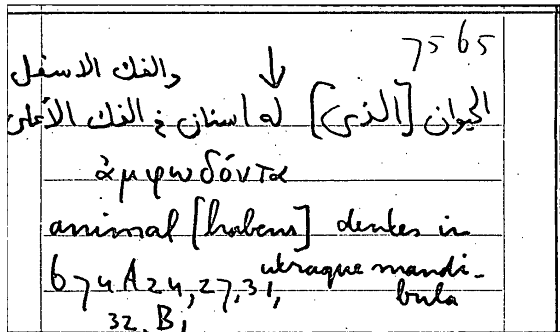 7565
والفك الاسفل
الحيوان [الذي] له اسنان في الفك الأعلى
ἀμφωδόντα
animal [habens] dentes in
utraque mandi-
bula
674A24,27,31,
32,B1